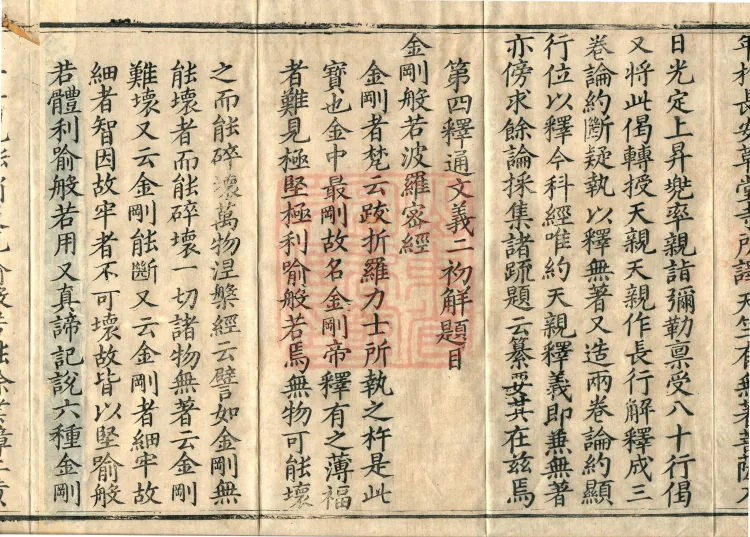 年於長安草堂寺所譯天竺有無著菩薩
日光定上昇兜率親詣彌勒禀受八十行偈
又將此偈轉授天親天親作長行解釋成三
卷論約斷疑執以釋無著又造兩卷論約顯
行位以釋今科經唯約天親釋義即兼無著
亦傍求餘論採集諸䟽題云纂要其在兹焉
第四釋通文義二初解題目
金剛般若波羅密經
金剛者梵云跋折羅力士所執之杵是此
寶也金中最剛故名金剛帝釋有之薄福
者難見極堅極利喻般若焉無物可能壞
之而能碎壞萬物涅槃經云譬如金剛無
能壞者而能碎壞一切諸物無著云金剛
難壞又云金剛能斷又云金剛者細牢故
細者智因故牢者不可壞故皆以堅喻般
若體利喻般若用又真諦記說六種金剛